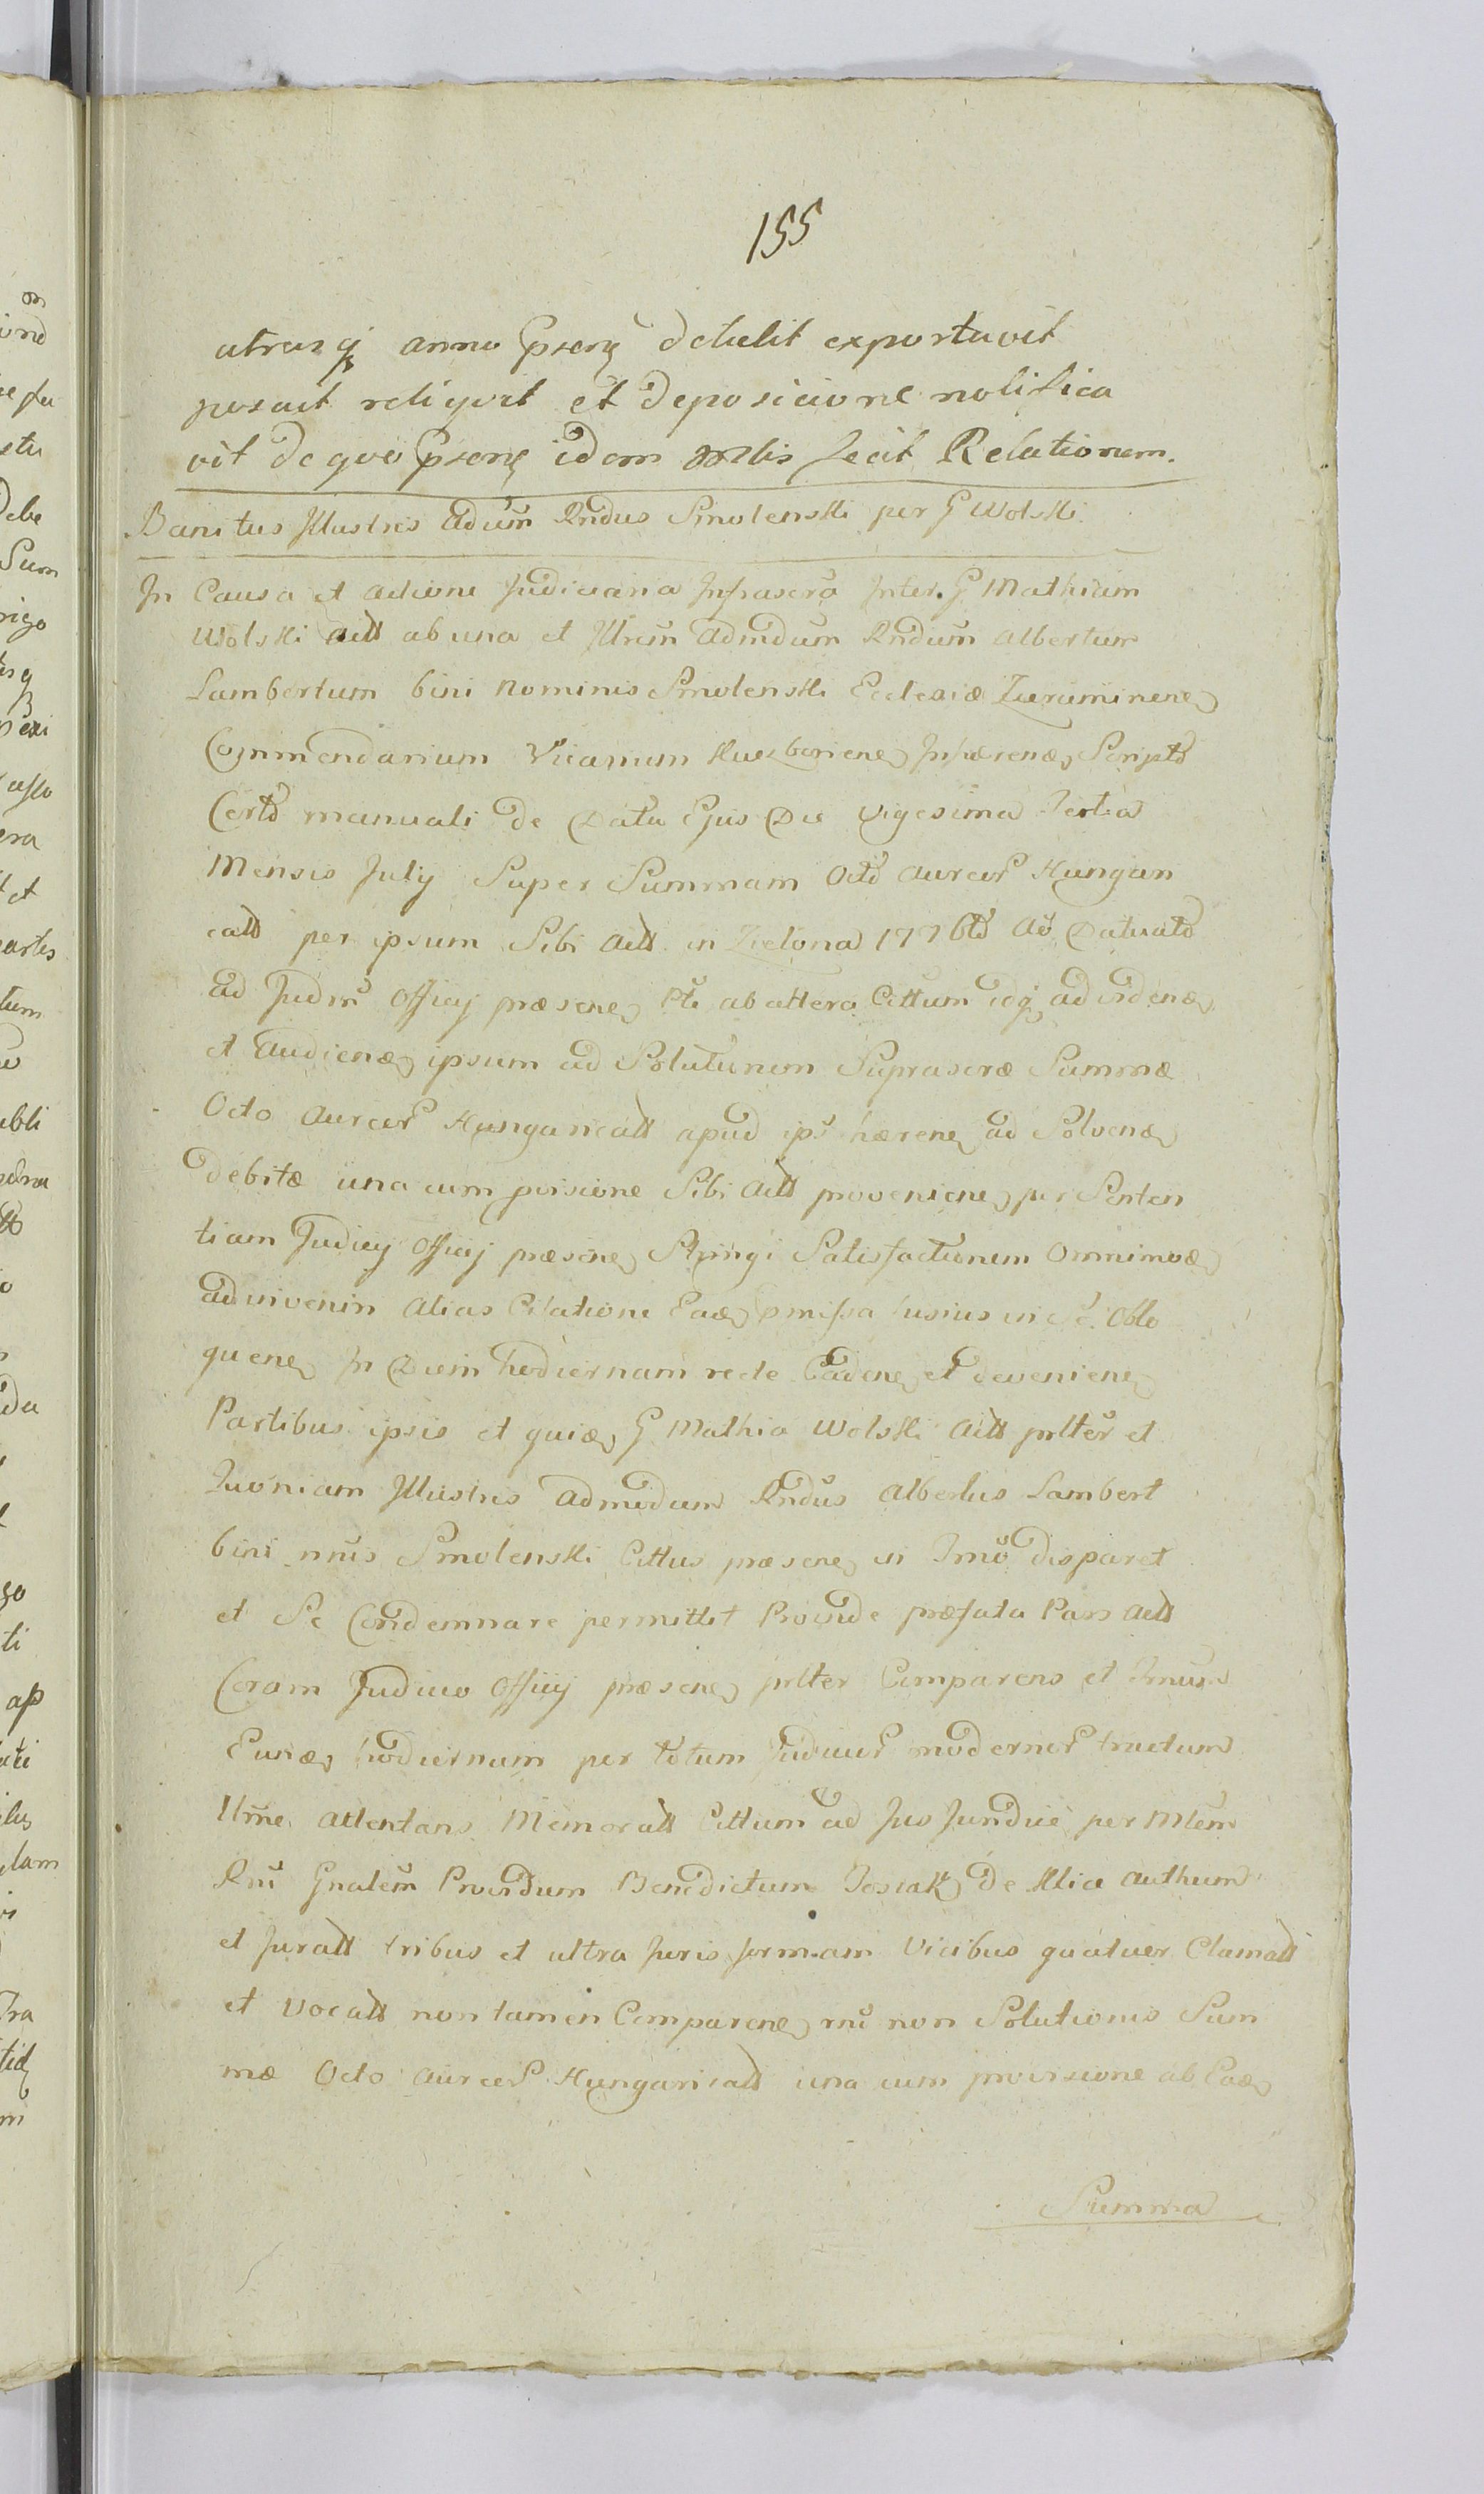 155
utrasq anno psens detulit exportavit
posuit reliquit et deposicione notifica
vit de quo psens idem Mlis fecit Relationem.
Banitus Illustris Adum Rndus Smolenski per G Wolski
In Causa et actione Judiciaria Infrascra Inter G Mathiam
Wolski Actt ab una et Illrem Admdum Rndum Albertum
Lambertum bini nominis Smolenski Ecclesiæ
Commendarium Vicarium Scripto
Certo manuali de Data Ejus Die Vigesima Tertia
Mensis July Super Summam Octo Aureor Hungari
catt per ipsum Sibi Actt in Zielona 177 Ao Datuato
ad Judm Officij præsens Pte ab altera Cittum idq ad vidend
et Audiend ipsum ad Solutionem Suprascræ Summæ
Octo Aureor Hungaricatt apud ips hærene ad Solvend
debitæ una cum provisione Sibi Actt proveniene per Senten
tiam Judicij Officij præsene Stringi Satisfactionem Omnimod
adinvenin Alias Citatione Ead pmissa fusius in Se Oblo
quene In Diem hodiernam recte Cadene et deveniene
Partibus ipsis et quid G Mathia Wolski Actt prlter et
Quoniam Illustris Admodum Rndus Albertus Lambert
bini nnis Smolenski Cittus præsene in Tmo disparet
et Se Condemnare permittit Proinde præfata Pars Actt
Coram Judicio Officij præsene prlter Comparens et Tmum
Eund hodiernum per totum Judicior modernor tractum
Ilrme Attentans Memoratt Cittum ad Jus Jundice per Mlem
Rni Gnalem Providum Benedictum de Authum
et Juratt tribus et ultra Juris formam Vicibus quatuor Clamatt
et Vocatt non tamen Comparene rni non Solutionis Sum
mæ Octo Aureor Hungaricatt una cum provisione ab Ead
Summa